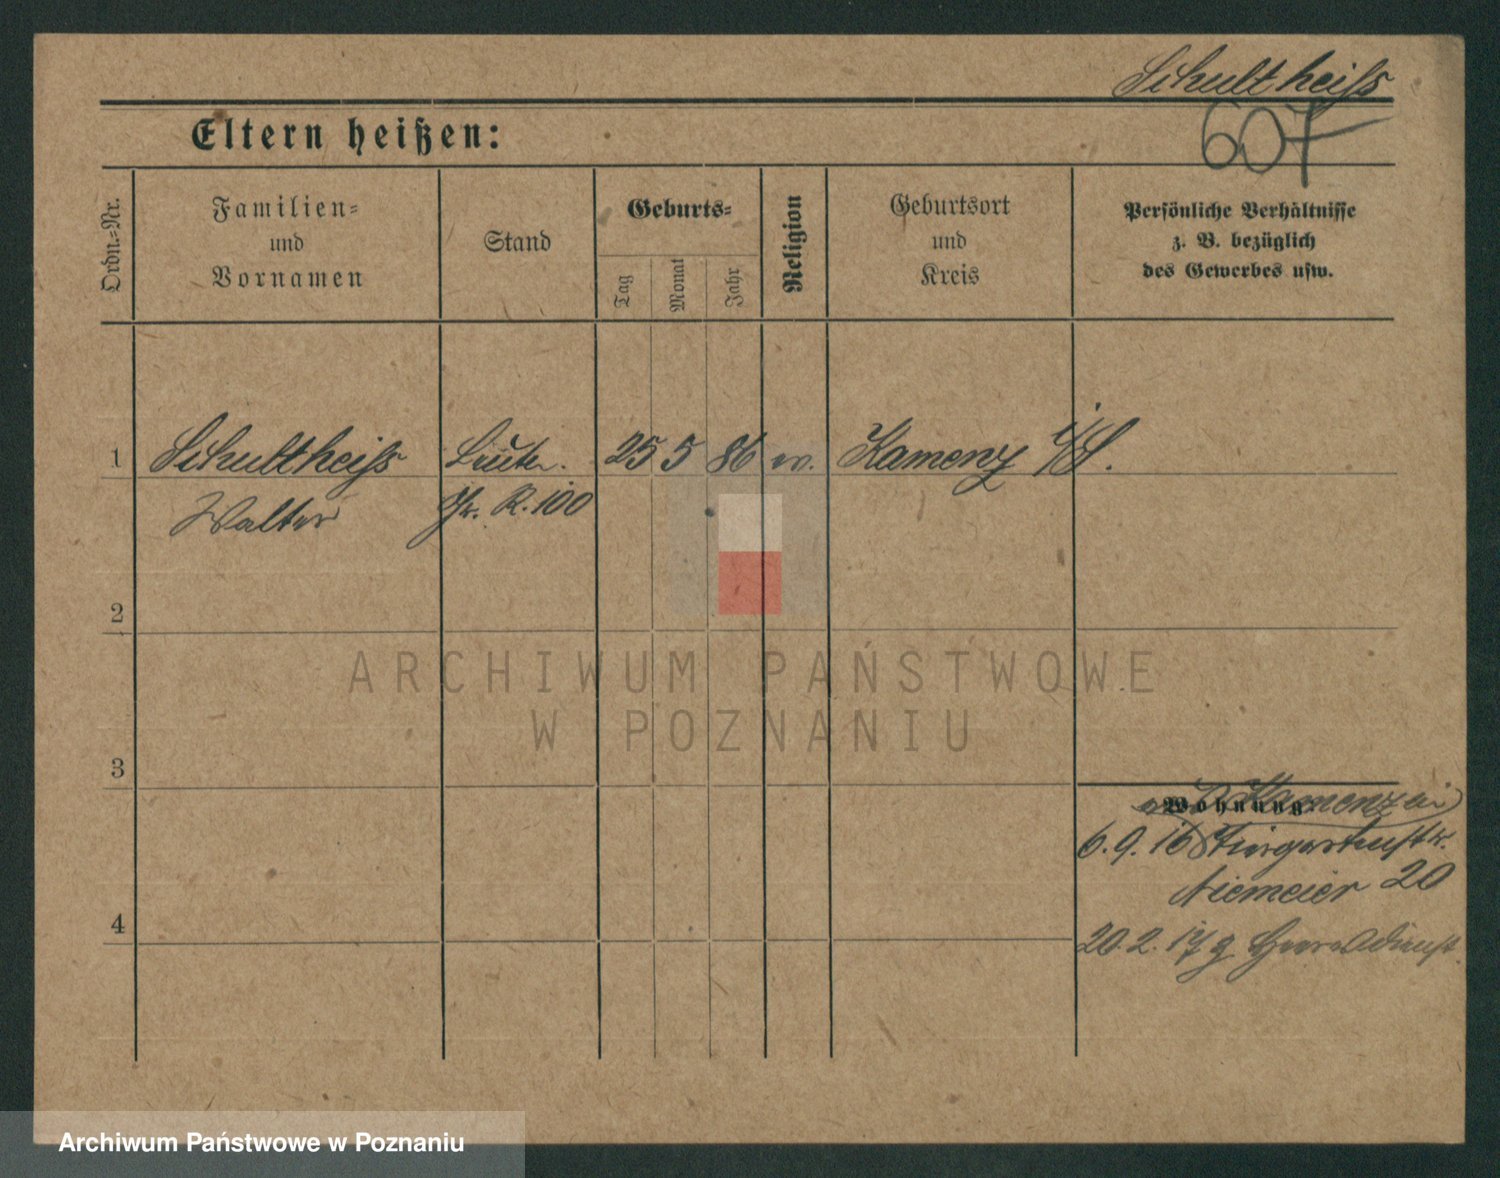 Schultheiss
607
Eltern heißen:
Ordn.-Nr.
Familien-
und
Vornamen
Stand
Geburts-
Tag
Monat
Jahr
Religion
Geburtsort
und
Kreis
Persönliche Verhältnisse
z. B. bezüglich
des Gewerbes usw.
1 Schultheiss Leutn. 25 5 86 ev. Kamenz i/S.
Walter R. 100
2
ARCHIWUM PAŃSTWOWE
W POZNANIU
3
Wohnung: Kamenz
6.9.16 Tiergartenstr.
Niemeier 20
4
20.2.17 Heeresdienst.
Archiwum Państwowe w Poznaniu